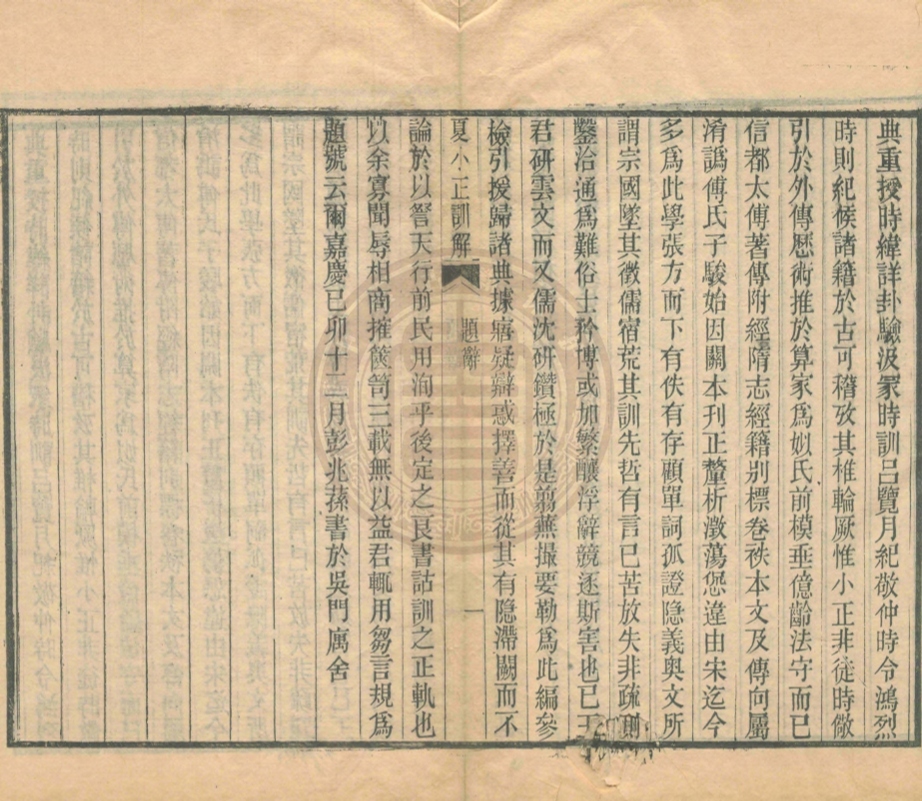 典重授時緯詳卦驗汲冢時訓呂覽月紀敬仲時令鴻烈
時則紀候諸籍於古可稽攷其椎輪厥惟小正非徒時儆
引於外傳厯術推於算家爲姒氏前模垂億齡法守而已
信都太傅著傳附經隋志經籍别標卷袟本文及傳向屬
淆譌傅氏子駿始因關本刊正釐析澂蕩愆違由宋迄今
多爲此學張方而下有佚有存顧單詞孤證隐義奥文所
謂宗國墜其徵儒宿荒其訓先哲有言已苦放失非疏則
鑿洽通爲難俗士矜博或加繁釀浮辭競逐斯害也已王
君研雲文而又儒沈研鑽極於是翦燕撮要勒爲此編參
檢引援歸諸典據寤疑辯惑擇善而從其有隐滯闕而不
夏小正訓解
題辭
一
論於以詧天行前民用洵乎後定之良書詁訓之正軌也
以余寡聞辱相商搉篋笥三載無以益君輒用芻言規爲
題號云爾嘉慶已卯十二月彭兆蓀書於吳門寓舍